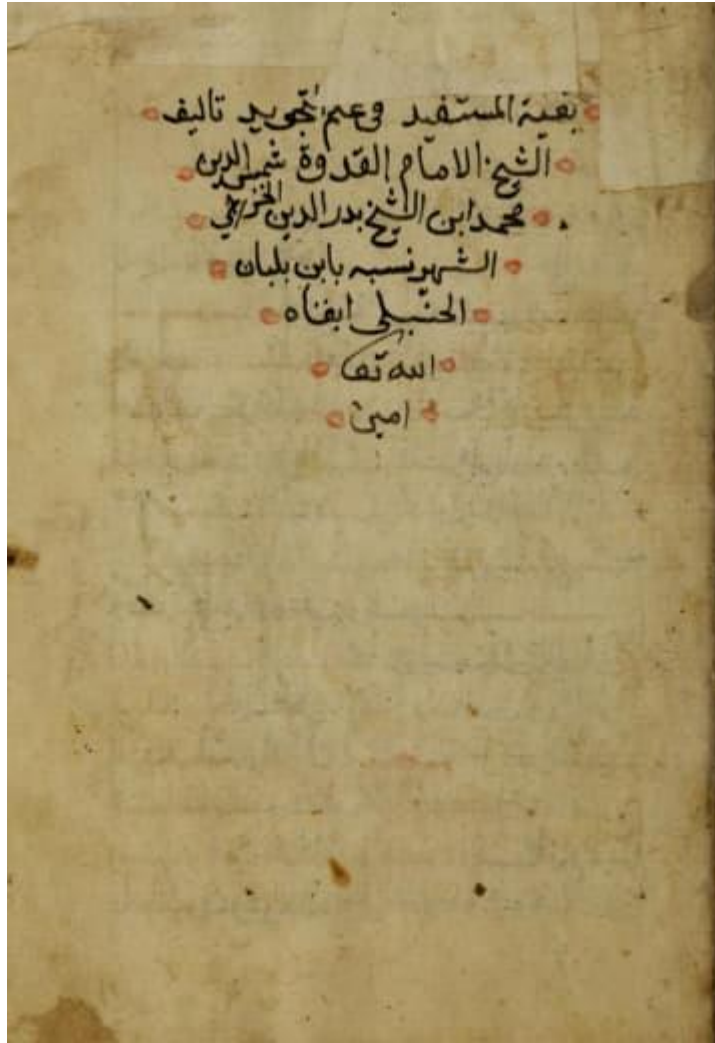 بغية المستفيد في علم التجويد تاليف
الشيخ الامام القدوة شمس الدين
محمد ابن الشيخ بدر الدين الخزرجي
الشهير نسبه بابن بلبان
الحنبلي ابقاه
الله تعا
امين